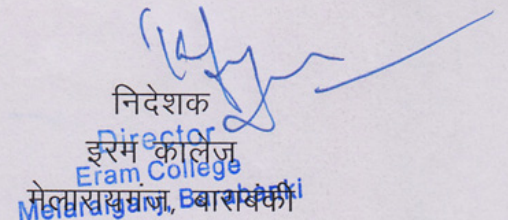 निदेशक
Director
इरम कालेज
Eram College
मेलारायगंज, बाराबंकी
Melaraiganj, Barabanki